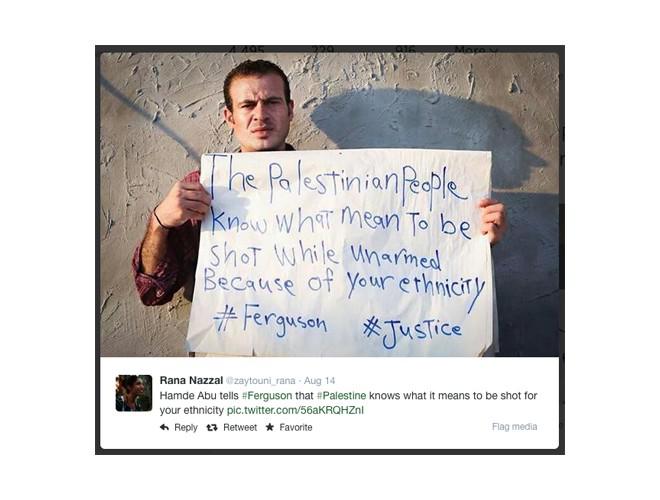 The Palestinian People
Know what mean To be
shot While unarmed
Because of your ethnicity
#Ferguson #Justice
Rana Nazzal @zaytouni_rana · Aug 14
Hamde Abu tells #Ferguson that #Palestine knows what it means to be shot for
your ethnicity pic.twitter.com/56aKRQHZnI
Reply Retweet Favorite Flag media